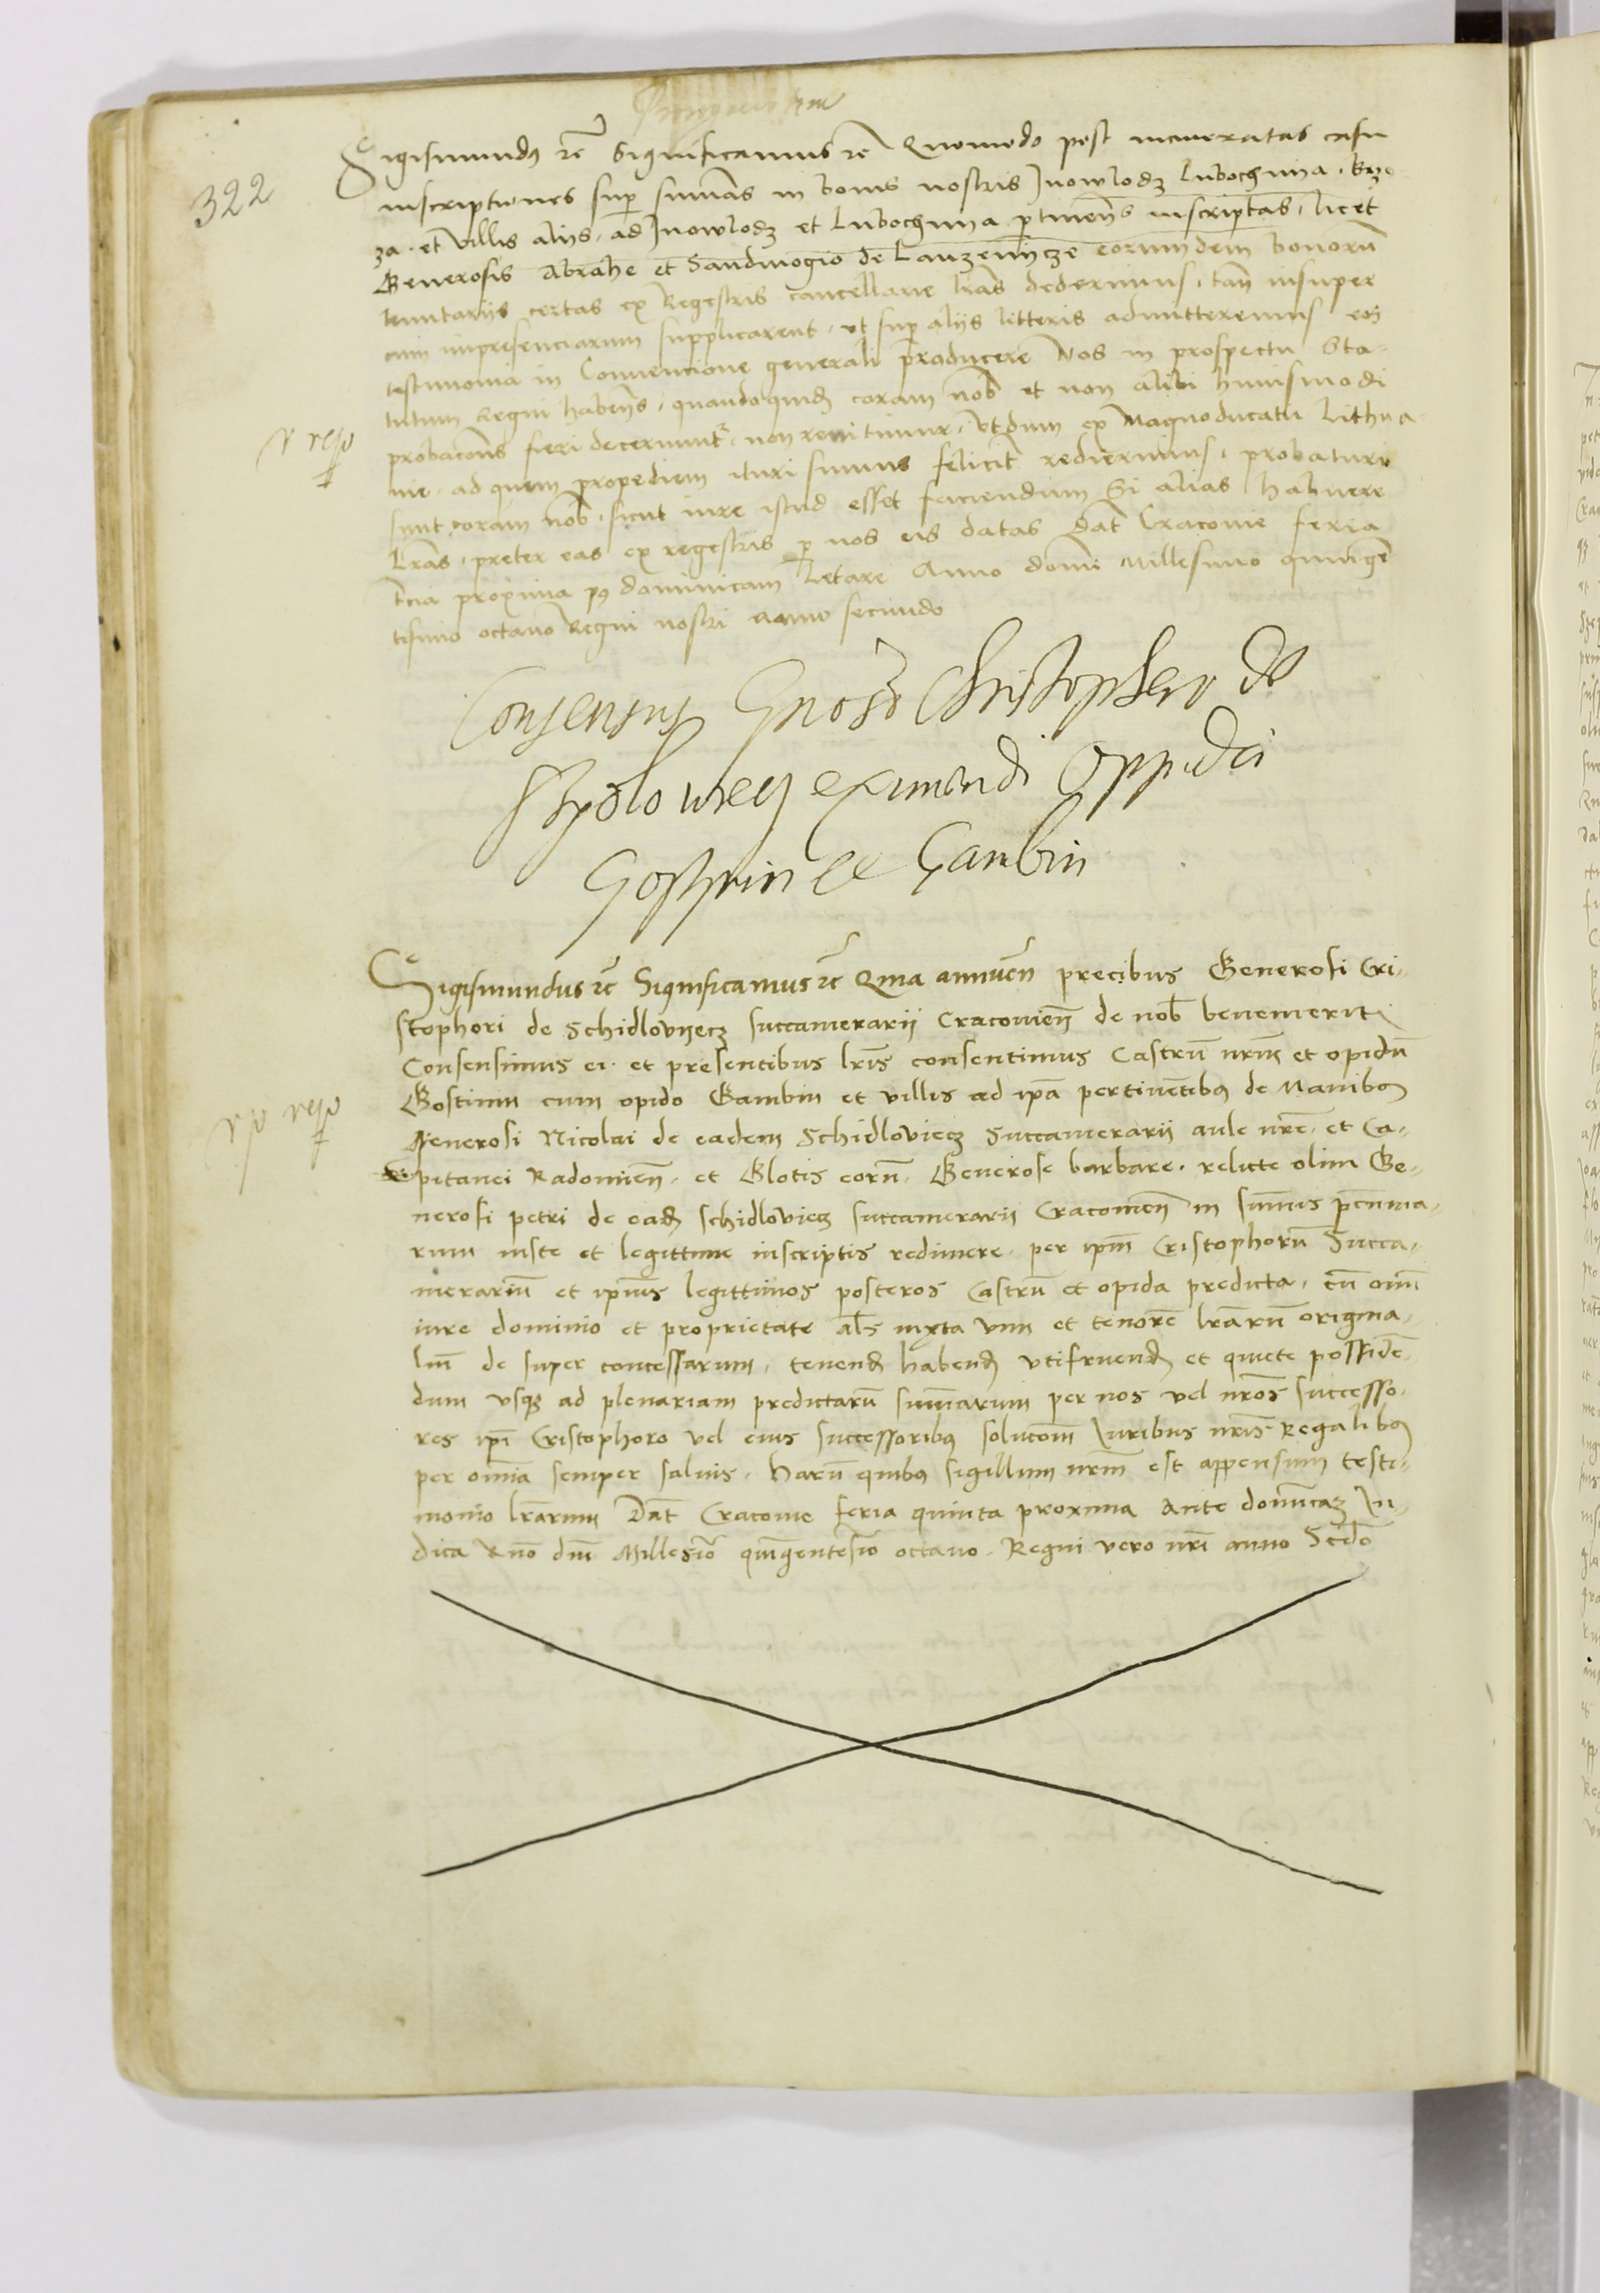 322
Sigismundus rc Significamus rc Quomodo post incineratas casu
inscriptiones sup summas in bonis nostris Inowlodz Lubochinia
za et villis aliis ad Inowlodz et Lubochina ptinens inscriptas licet
Generosis Abrahe et Sandivogio de Lanzenicze eorumdem bonorum
tenutariis certas ex Regestris cancellarie lras dederimus tam insuper
cum impresenciarum supplicarent ut sup aliis litteris admitteremus eos
testimonia in Convencione generali producere Nos in prospectu Sta-
tutum Regni habens quandoquidem coram nob et non alibi huiusmodi
probacons fieri decernuntr non renitimur ut dum ex Magnoducatu Lithua
nie ad quem propediem ituri sumus felicit redierimus probaturi
sunt coram nob sicut iure istud esset faciendum Si alias habuere
lras preter eas ex regestris p nos eis datas Dat Cracovie feria
tcia proxima p9 dominicam Letare Anno domi Millesimo quinge
tisimo octavo Regni nostri anno secundo
Consensus Gnoso Christophero de
Schydlowyecz eximendi Oppida
Gostynin et Gambin
Sigismundus rc Significamus rc Quia annuen precibus Generosi Cri-
stophori de Schidlovyecz succamerarii Cracovien de nob benemeriti
Consensimus ei et presentibus lris consentimus Castru nrm et opidu
Gostinin cum opido Gambin et villis ad ipa pertinentibus de Manibus
Generosi Nicolai de eadem Schidloviecz Succamerarii aule nre et Ca-
pitanei Radomien et Glotis eorum Generose barbare relicte olim Ge-
nerosi petri de eadem schidloviecz succamerarii Cracovien in summis pecunia-
rum iuste et legittime inscriptis redimere per ipm Cristophorum Succa-
merarium et ipius legittimos posteros Castru et opida predicta cu omi
iure dominio et proprietate als iuxta vim et tenore lraru origina-
lium de super concessarum tenend habend utifruend et quiete possiden-
dum usque ad plenariam predictaru summarum per nos vel nros successo-
res ipi Cristophoro vel eius successoribus solucom Iuribus nris Regalibus
per omnia semper salvis Haru quibus sigillum nrm est appensum testi-
monio lrarum Dat Cracovie feria quinta proxima Ante dominica Iu-
dica Anno dni Millesimo quingentesimo octavo Regni vero nri anno Scdo